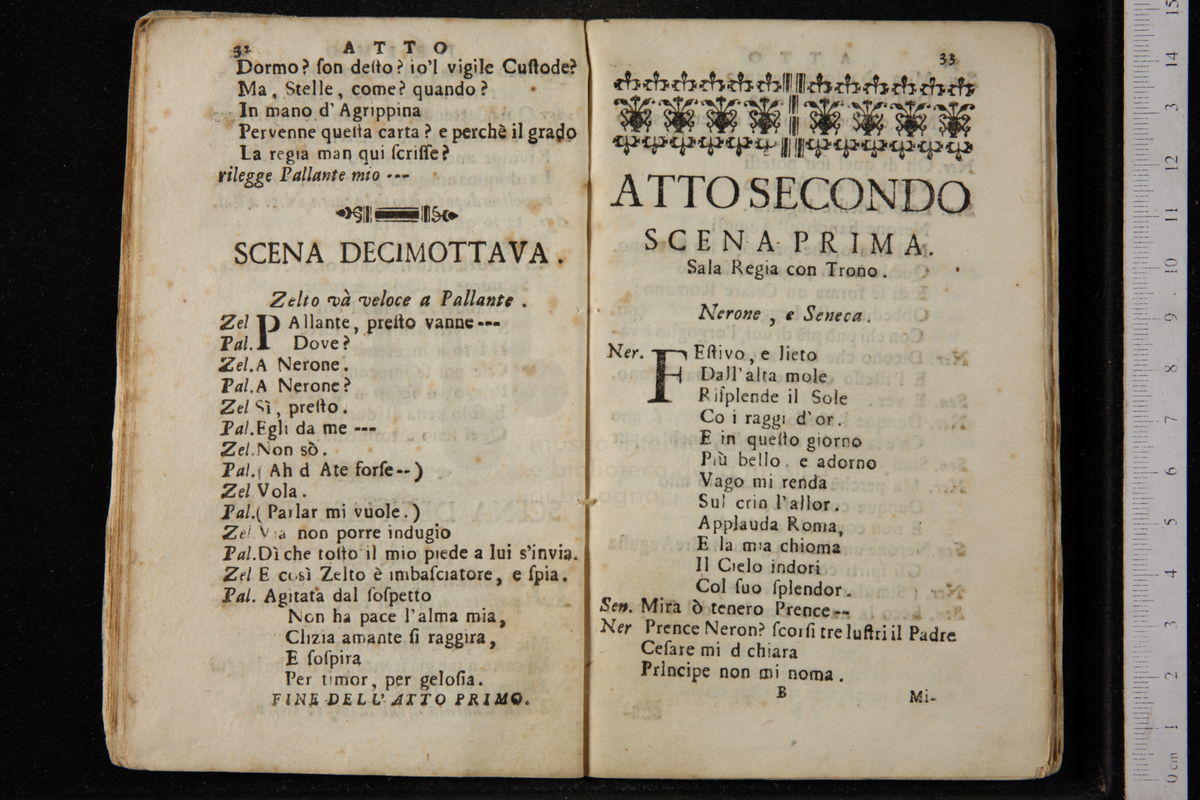 32 ATTO
Dormo? ſon deſto? io'l vigile Cuſtode?
Ma, Stelle, come? quando?
In mano d'Agrippina
Pervenne queſta carta? e perchè il grado
La regia man qui ſcriſſe?
rilegge Pallante mio ---
SCENA DECIMOTTAVA.
Zelto và veloce a Pallante.
Zel PAllante, preſto vanne ---
Pal. Dove?
Zel. A Nerone.
Pal. A Nerone?
Zel Sì, preſto.
Pal. Egli da me ---
Zel. Non sò.
Pal. (Ah d Ate forſe--)
Zel Vola.
Pal. (Parlar mi vuole.)
Zel. Via non porre indugio
Pal. Dì che toſto il mio piede a lui s'invia.
Zel E così Zelto è imbaſciatore, e ſpia.
Pal. Agitata dal ſoſpetto
Non ha pace l'alma mia,
Clizia amante ſi raggira,
E ſoſpira
Per timor, per geloſia.
FINE DELL'ATTO PRIMO.
33
ATTO SECONDO
SCENA PRIMA.
Sala Regia con Trono.
Nerone, e Seneca.
Ner. FEſtivo, e lieto
Dall'alta mole
Riſplende il Sole
Co i raggi d'or.
E in queſto giorno
Più bello, e adorno
Vago mi renda
Sul crin l'allor.
Applauda Roma,
E la mia chioma
Il Cielo indori
Col ſuo ſplendor.
Sen. Mira ò tenero Prence--
Ner Prence Neron? ſcorſi tre luſtri il Padre
Ceſare mi d chiara
PrIncipe non mi noma.
B Mi-